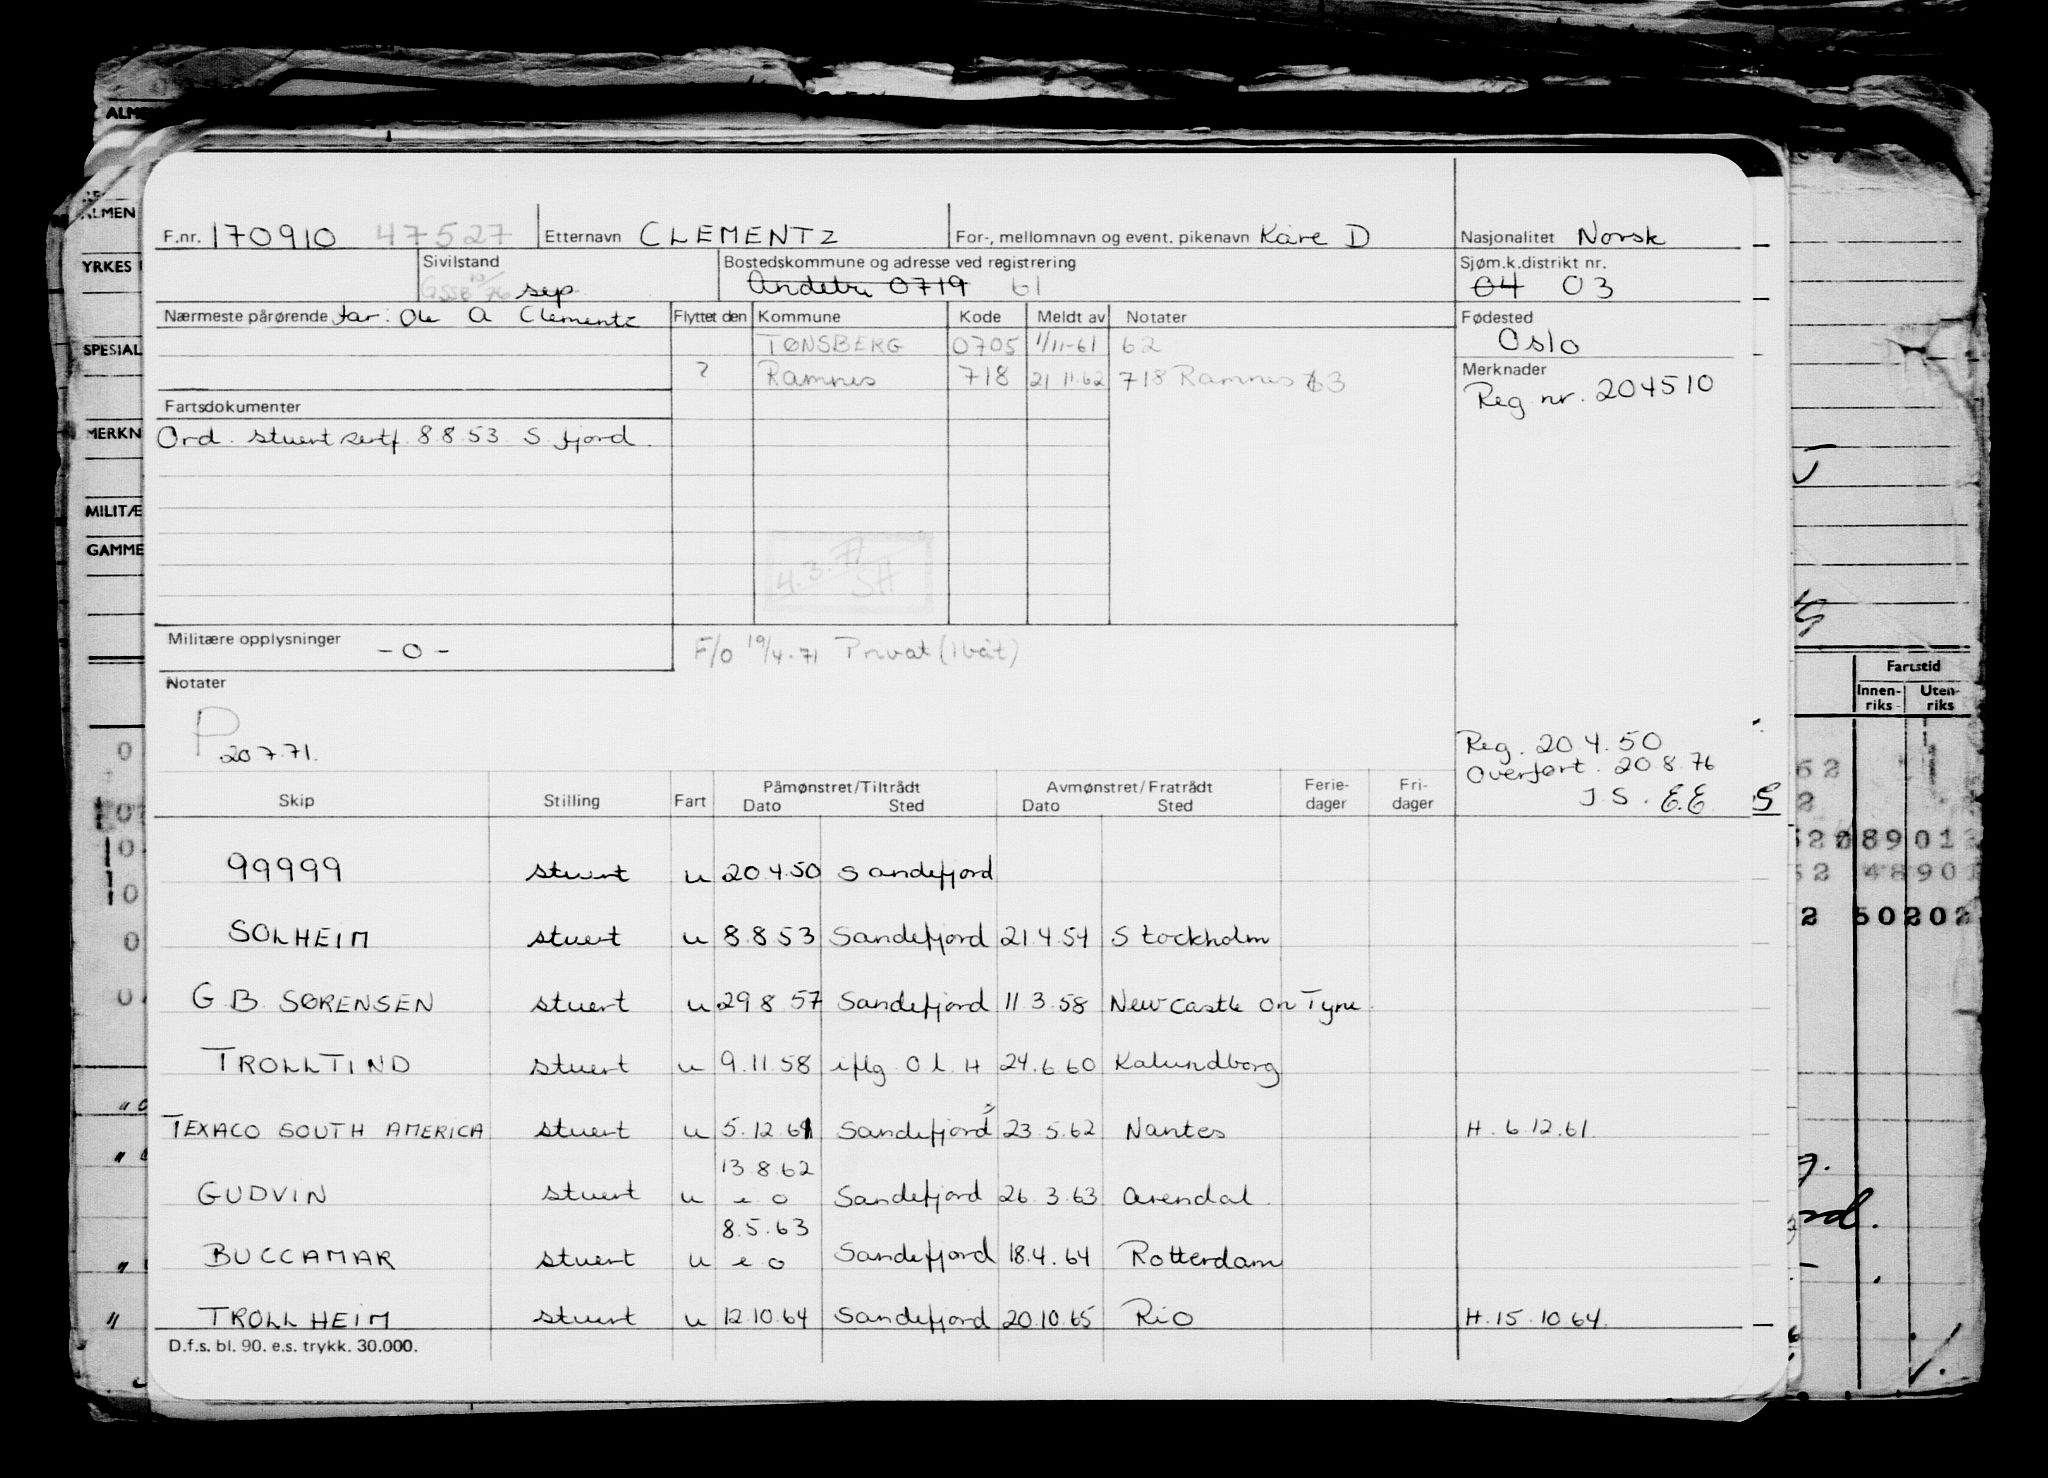 F.nr. 170910 47527 Etternavn CLEMENTZ For-, mellomnavn og event. pikenavn Kåre D Nasjonalitet Norsk
Sivilstand sep Bostedskommune og adresse ved registrering Andebu 0719 61 Sjøm.k.distrikt nr. 04 03
Nærmeste pårørende far: Ole A Clementz Flyttet den Kommune Kode Meldt av Notater Fødested
TØNSBERG 0705 1/11-61 62 Oslo
? Ramnes 718 21 11.62 718 Ramnes 63 Merknader
Reg nr. 204510
Fartsdokumenter
Ord. stuert sertf. 8.8.53 S.fjord.
4.3.71
SH
Militære opplysninger - 0 - F/O 19/4-71 Privat (1 båt)
Notater
P 20.7.71.
Reg. 20.4.50
Overført. 20.8.76
J.S. E.E
Påmønstret/Tiltrådt Avmønstret/Fratrådt Ferie- Fri-
Skip Stilling Fart Dato Sted Dato Sted dager dager
99999 stuert u 20.4.50 Sandefjord
SOLHEIM stuert u 8.8.53 Sandefjord 21.4.54 Stockholm
G.B. SØRENSEN stuert u 29.8.57 Sandefjord 11.3.58 Newcastle on Tyne.
TROLLTIND stuert u 9.11.58 iflg O.l.H 24.6.60 Kalundborg
TEXACO SOUTH AMERICA stuert u 5.12.61 Sandefjord 23.5.62 Nantes H. 6.12.61.
13.8.62
GUDVIN stuert u e o Sandefjord 26.3.63 Arendal
8.5.63
BUCCAMAR stuert u e o Sandefjord 18.4.64 Rotterdam
TROLLHEIM stuert u 12.10.64 Sandefjord 20.10.65 Rio H. 15.10.64.
D.f.s. bl. 90. e.s. trykk. 30.000.
ALMEN
YRKES
SPESIAL
MERKN
MILITÆ
GAMME
Fartstid
Innen-
riks
Uten-
riks
2 50202